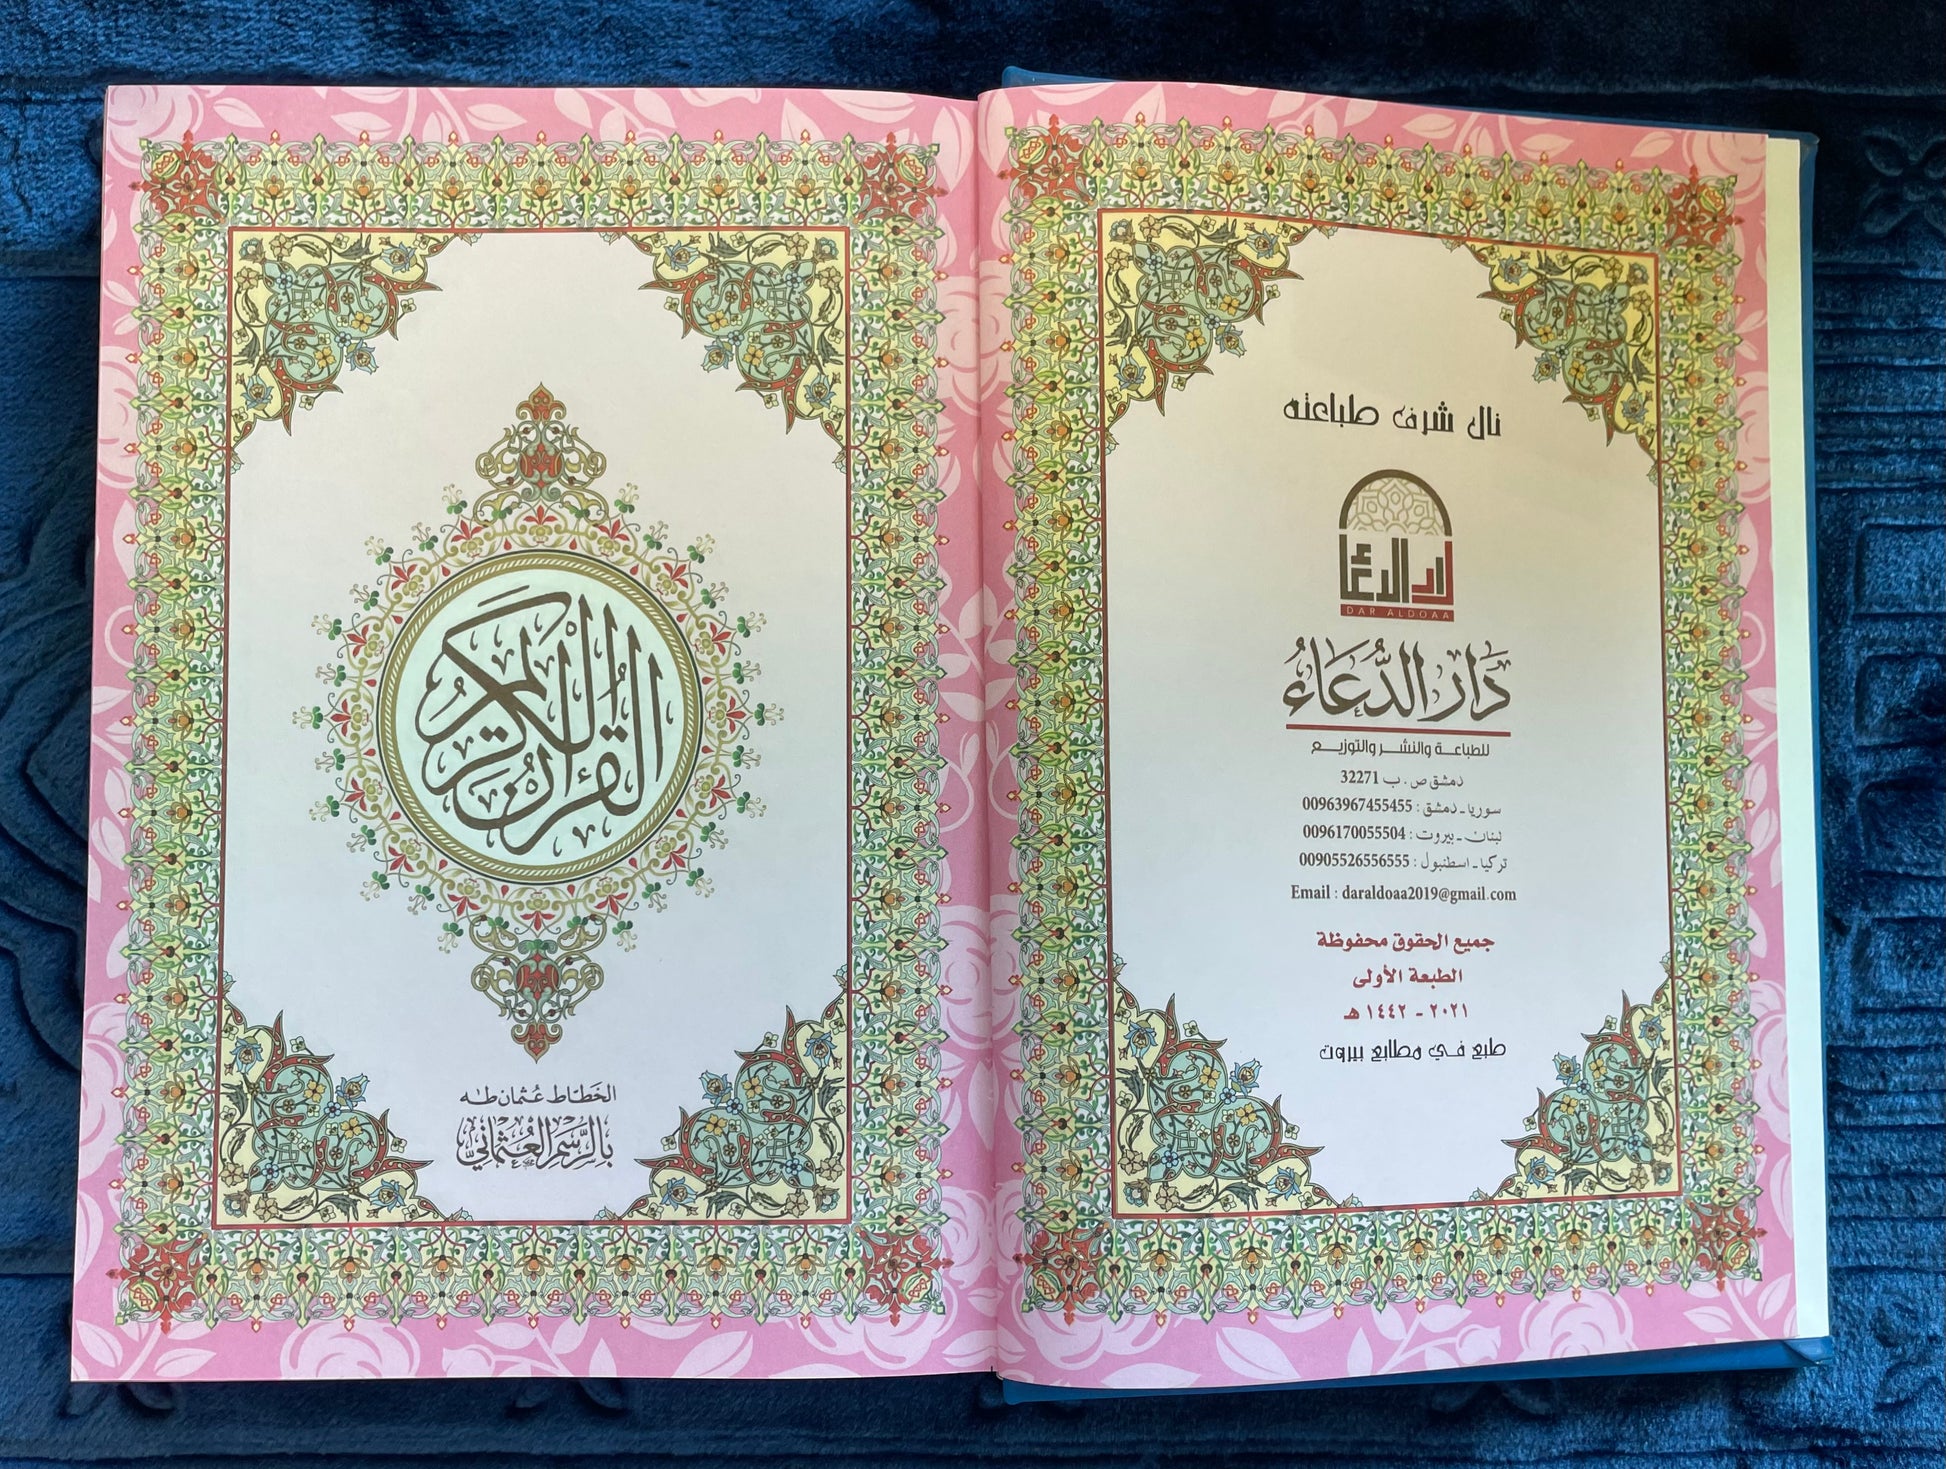 نال شرف طباعته
دار الدعاء
DAR ALDOAA
دَار الدُّعَاءُ
للطباعة والنشر والتوزيع
دمشق ص . ب 32271
سوريا ـ دمشق : 00963967455455
لبنان ـ بيروت : 0096170055504
تركيا ـ اسطنبول : 00905526556555
Email : daraldoaa2019@gmail.com
جميع الحقوق محفوظة
الطبعة الأولى
٢٠٢١ - ١٤٤٢ هـ
طبع في مطابع بيروت
القرآن الكريم
الخَطّاط عُثمان طه
بالرَّسْمِ العُثْمَانيِّ